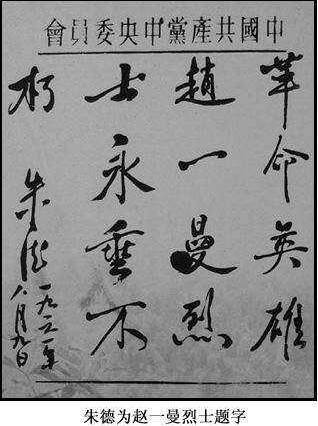 中國共產黨中央委員會
革命英雄
趙一曼烈
士永垂不
朽
朱德
一九年
八月九日
朱德为赵一曼烈士题字